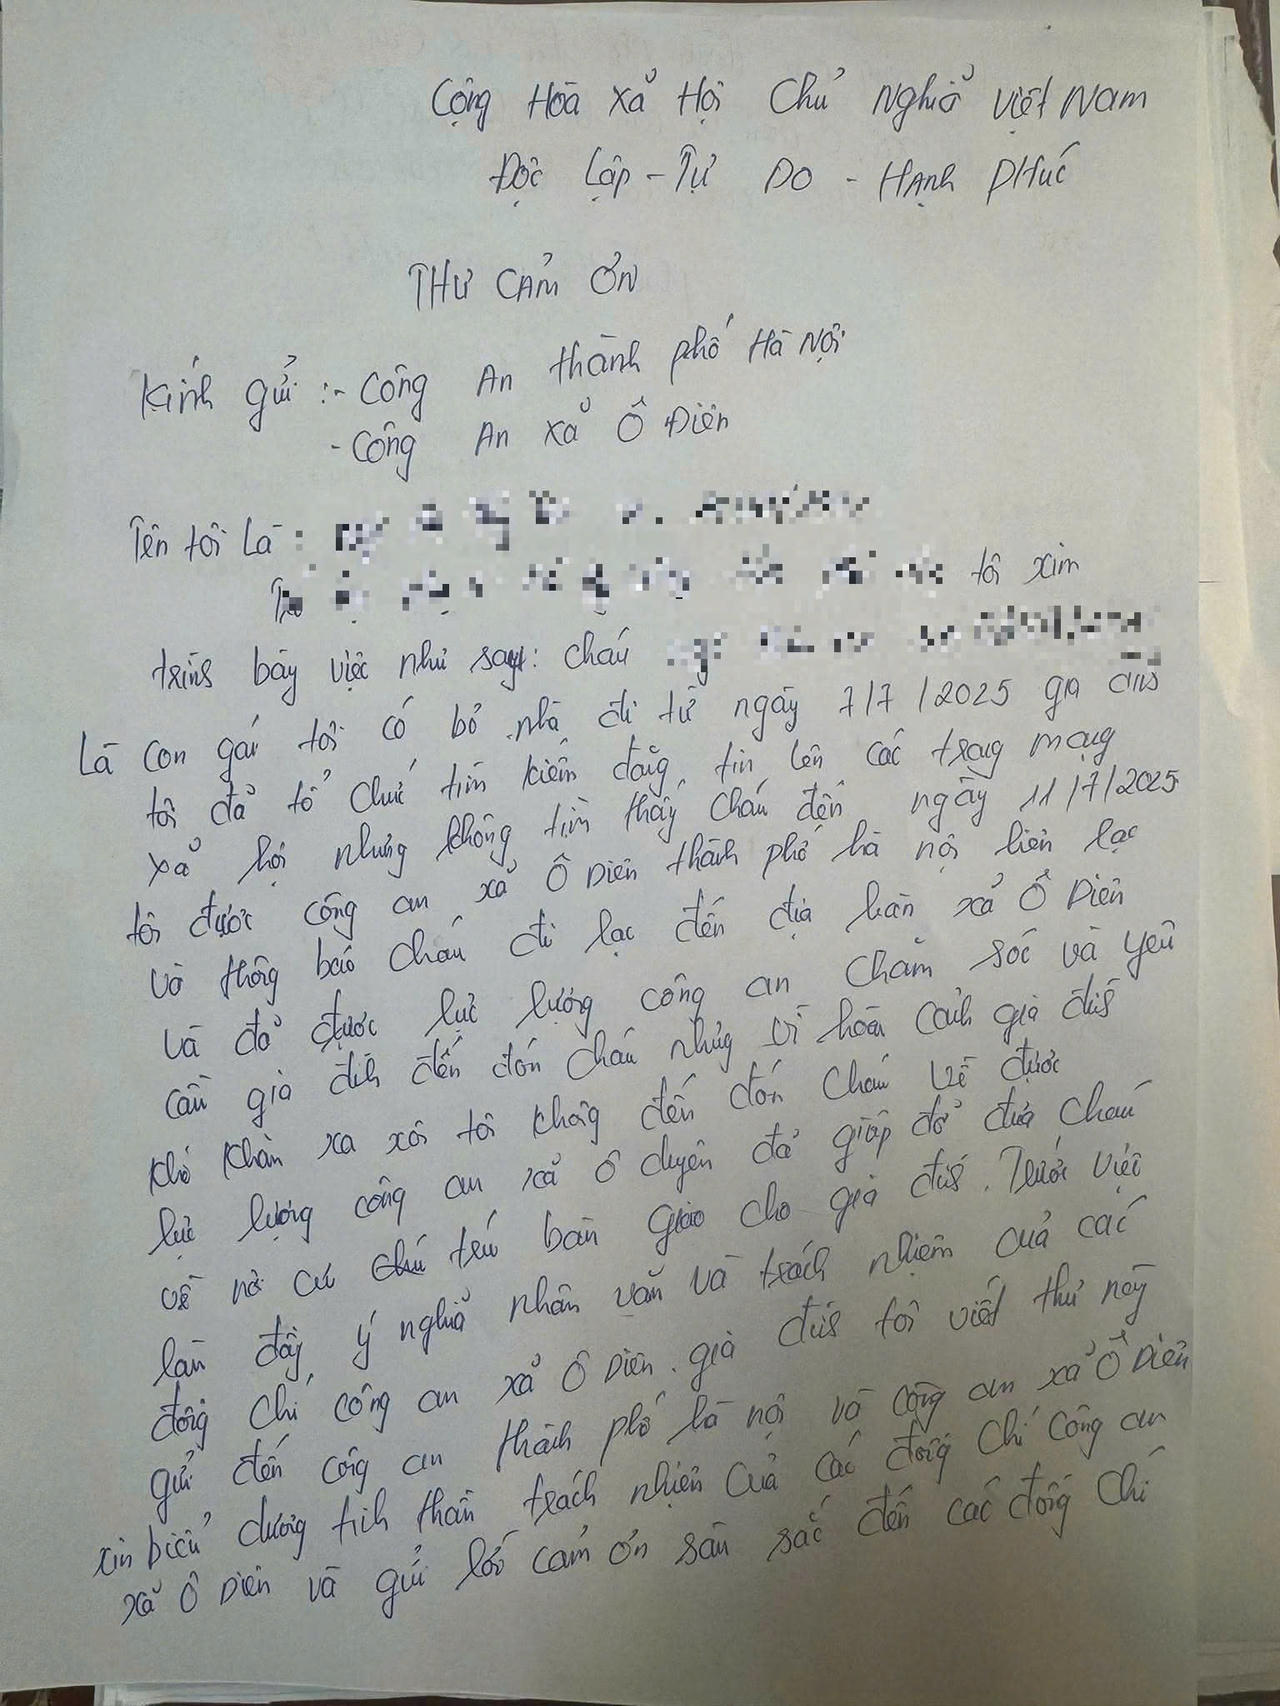 Cộng Hòa Xả Hội Chủ Nghiả Việt Nam
Độc Lập - Tự Do - Hạnh Phúc
THƯ CẢM ƠN
Kính gửi :- Công An thành phố Hà Nội
- Công An xả Ô Diên
Tên tôi Là :
tôi xin
trình bày việc như sau: cháu
Là con gái tôi có bỏ nhà đi từ ngày 7/7/2025 gia đình
tôi đả tổ chức tìm kiếm đăng tin lên các trang mạng
xả hội nhưng không tìm thấy cháu đến ngày 11/7/2025
tôi được công an xả Ô Diên thành phố hà nội liên lạc
và thông báo cháu đi lạc đến địa bàn xả Ô Diên
và đả được lực lượng công an chăm sóc và yêu
cầu gia đình đến đón cháu nhưng vì hoàn cảnh gia đình
khó khăn xa xôi tôi không đến đón cháu về được
lực lượng công an xả ô duyên đả giúp đở đưa cháu
về nơi cư trú bàn giao cho gia đình. Trước việc
làm đầy ý nghiả nhân văn và trách nhiệm của các
đồng chí công an xả Ô Diên. gia đình tôi viết thư này
gửi đến công an thành phố hà nội và công an xả Ô Diên
xin biểu dương tinh thần trách nhiệm của các đồng chí công an
xả Ô Diên và gửi lời cảm ơn sâu sắc đến các đồng chí